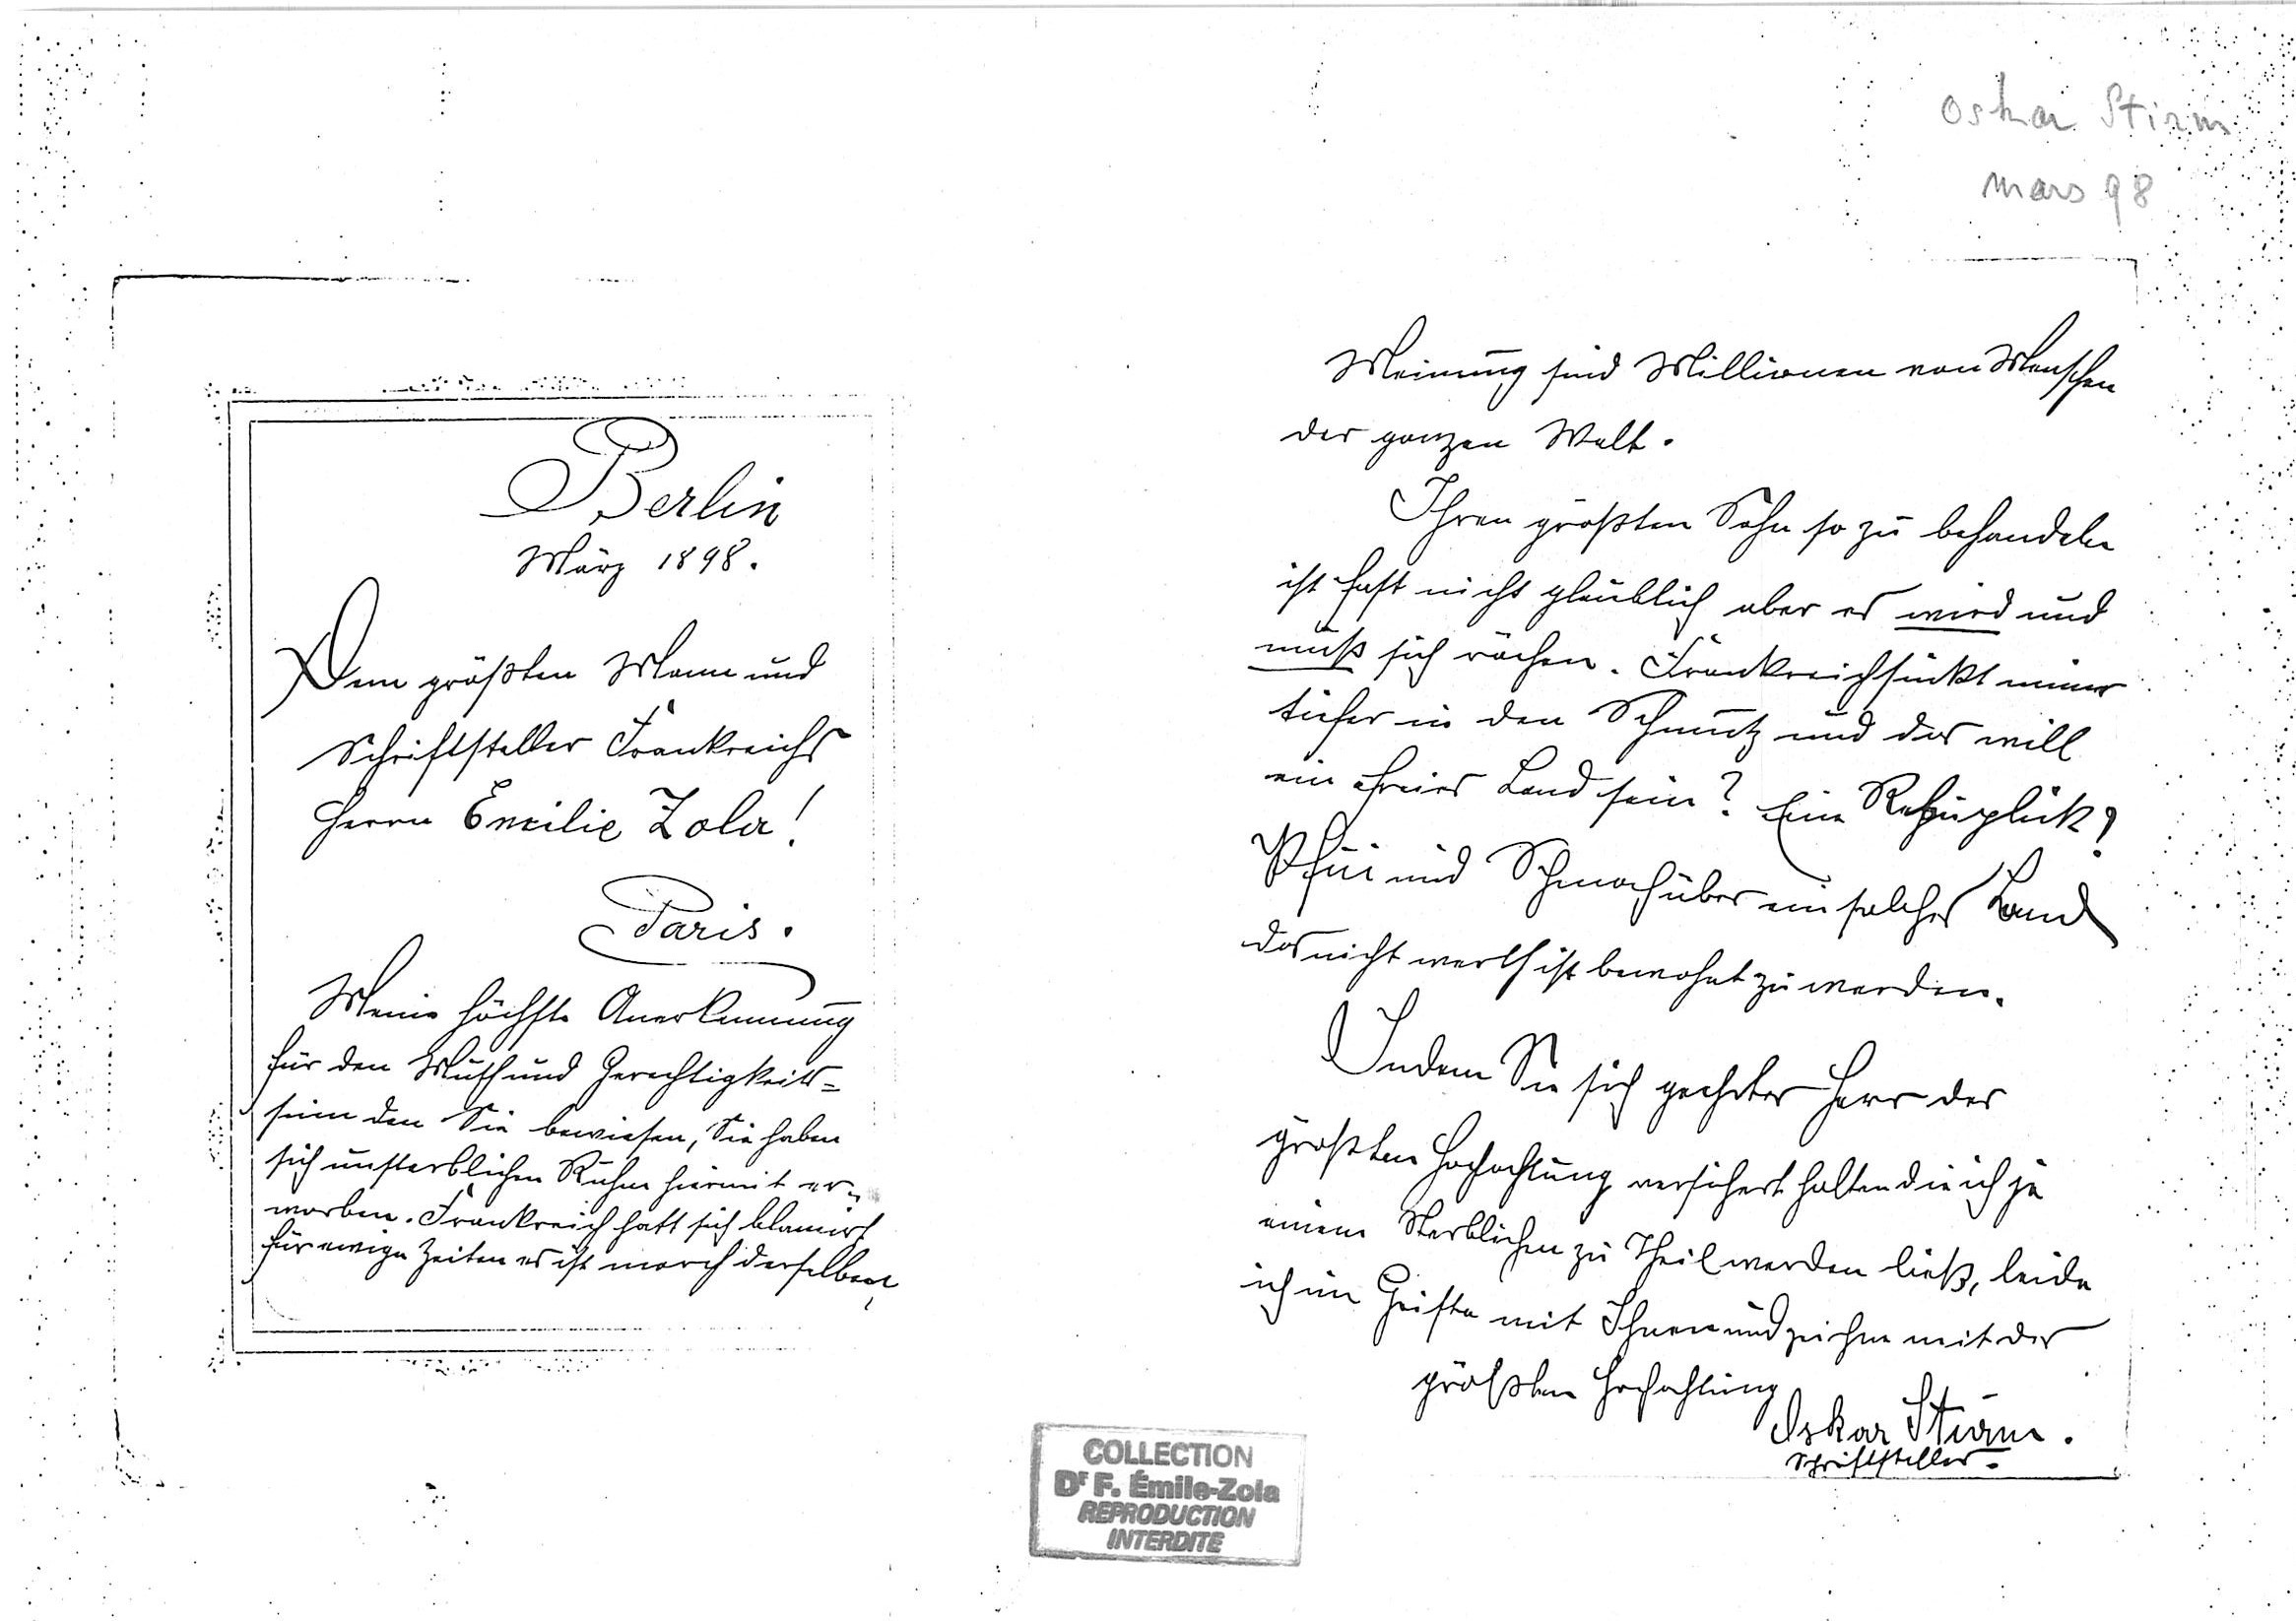 Oskar Stirm
mars 98
Berlin
März 1898.
Dem größten Mann und
Schriftsteller Frankreichs
Herrn Emilie Zola!
Paris.
Meine höchste Anerkennung
für den Muth und Gerechtigkeits=
sinn den Sie bewiesen, Sie haben
sich unsterblichen Ruhm hiermit er-
worben. Frankreich hatt sich blamirt
für ewige Zeiten es ist morsch derselben
Meinung sind Millionen von Menschen
der ganzen Welt.
Ihren größten Sohn so zu behandeln
ist fast nicht glaublich aber es wird und
muß sich rächen. Frankreich sinkt immer
tiefer in den Schmutz und das will
ein freies Land sein? Eine Republik?
Pfui und Schmach über ein solches Land
das nicht werth ist bewohnt zu werden.
Indem Sie sich geehrter Herr der
größten Hochachtung versichert halten die ich je
einem Sterblichen zu Theil werden ließ, leide
ich im Geiste mit Ihnen und zeichne mit der
größten Hochachtung
Oskar Sturm.
Schriftsteller.
COLLECTION
Dr F. Émile-Zola
REPRODUCTION
INTERDITE